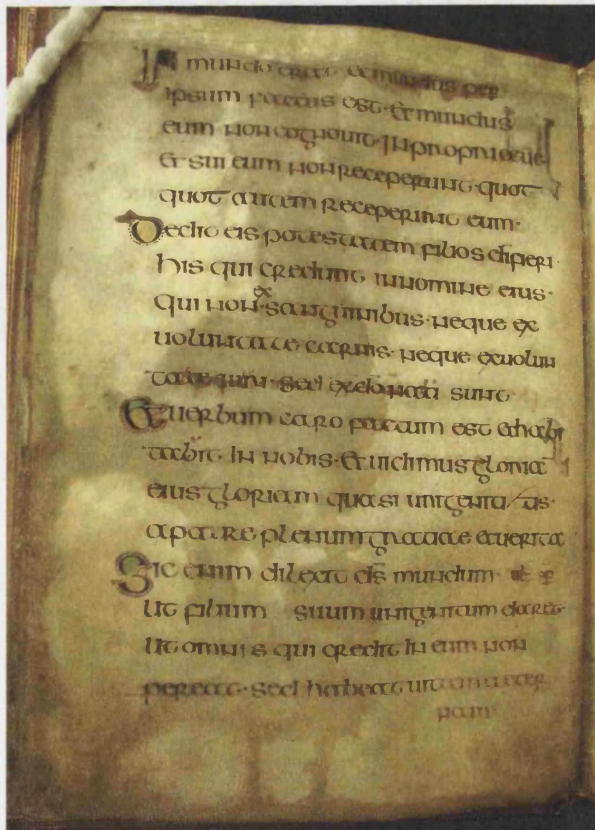 In mundo erat et mundus per
ipsum factus est· & mundus
eum non cognouit· In propria uenit
& sui eum non receperunt· quot
quot autem receperunt eum·
Dedit eis potestatem filios di fieri·
his qui credunt in nomine eius·
qui non ex sanginibus· neque ex
uoluntate carnis· neque ex uolun
tate uiri· sed ex do nati sunt
Et uerbum caro factum est et habi
tabit· in nobis· Et uidimus gloria
eius gloriam quasi unigeniti / tis·
a patre plenum gratiae et uerita
Sic enim dilexit ds mundum·
Ut filium suum unigenitum daret·
Ut omnis qui credit in eum non
pereat· sed habeat uitam aeter
nam·